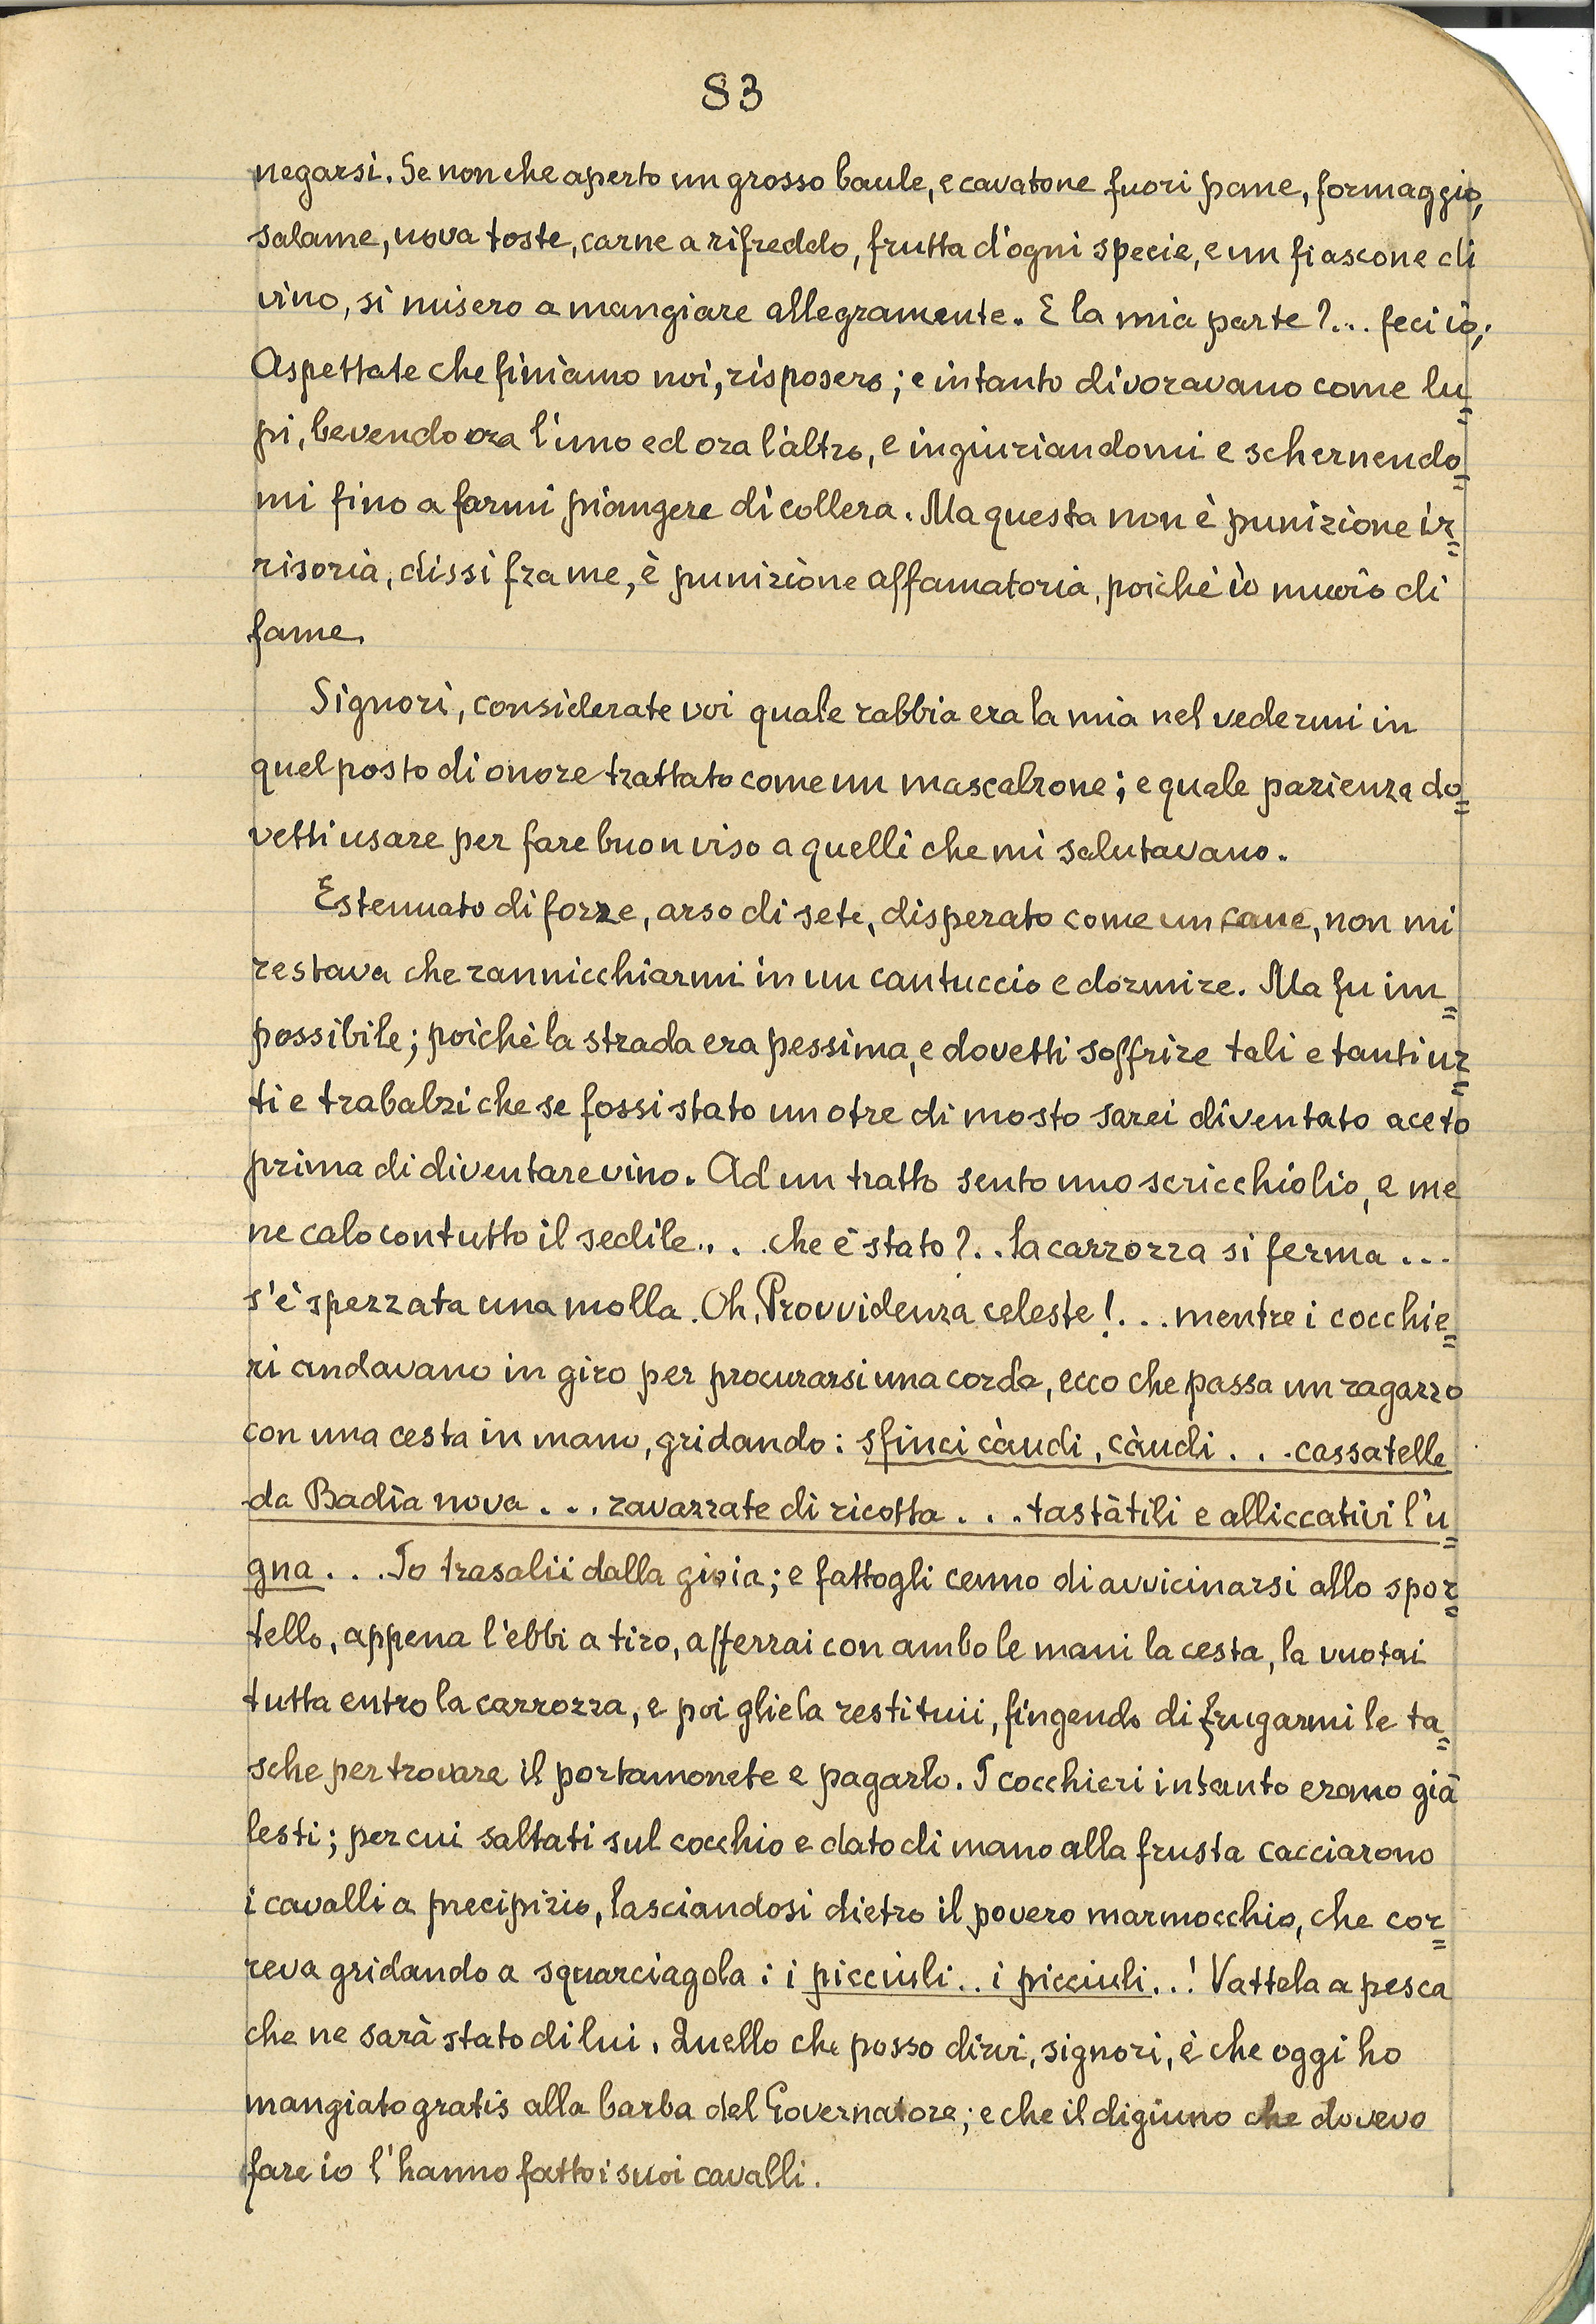 83
negarsi. Se non che aperto un grosso baule, e cavatone fuori pane, formaggio,
salame, uova toste, carne a rifreddo, frutta d'ogni specie, e un fiascone di
vino, si misero a mangiare allegramente. E la mia parte?... feci io;
Aspettate che finiamo noi, risposero; e intanto divoravano come lu=
pi, bevendo ora l'uno ed ora l'altro, e ingiuriandomi e schernendo=
mi fino a farmi piangere di collera. Ma questa non è punizione ir=
risoria, dissi fra me, è punizione affamatoria, poichè io muoio di
fame.
Signori, considerate voi quale rabbia era la mia nel vedermi in
quel posto di onore trattato come un mascalzone; e quale pazienza do=
vetti usare per fare buon viso a quelli che mi salutavano.
Estenuato di forze, arso di sete, disperato come un cane, non mi
restava che rannicchiarmi in un cantuccio e dormire. Ma fu im=
possibile; poichè la strada era pessima, e dovetti soffrire tali e tanti ur=
ti e trabalzi che se fossi stato un otre di mosto sarei diventato aceto
prima di diventare vino. Ad un tratto sento uno scricchiolio, e me
ne calo con tutto il sedile... che è stato?.. la carrozza si ferma...
s'è spezzata una molla. Oh, Provvidenza celeste!... mentre i cocchie=
ri andavano in giro per procurarsi una corda, ecco che passa un ragazzo
con una cesta in mano, gridando: sfinci càudi, càudi... cassatelle
da Badia nova... ravazzate di ricotta... tastàtili e alliccativi l'u=
gna... Io trasalii dalla gioia; e fattogli cenno di avvicinarsi allo spor=
tello, appena l'ebbi a tiro, afferrai con ambo le mani la cesta, la vuotai
tutta entro la carrozza, e poi gliela restituii, fingendo di frugarmi le ta=
sche per trovare il portamonete e pagarlo. I cocchieri intanto erano già
lesti; per cui saltati sul cocchio e dato di mano alla frusta cacciarono
i cavalli a precipizio, lasciandosi dietro il povero marmocchio, che cor=
reva gridando a squarciagola: i picciuli.. i picciuli..! Vattela a pesca
che ne sarà stato di lui. Quello che posso dirvi, signori, è che oggi ho
mangiato gratis alla barba del Governatore; e che il digiuno che dovevo
fare io l'hanno fatto i suoi cavalli.